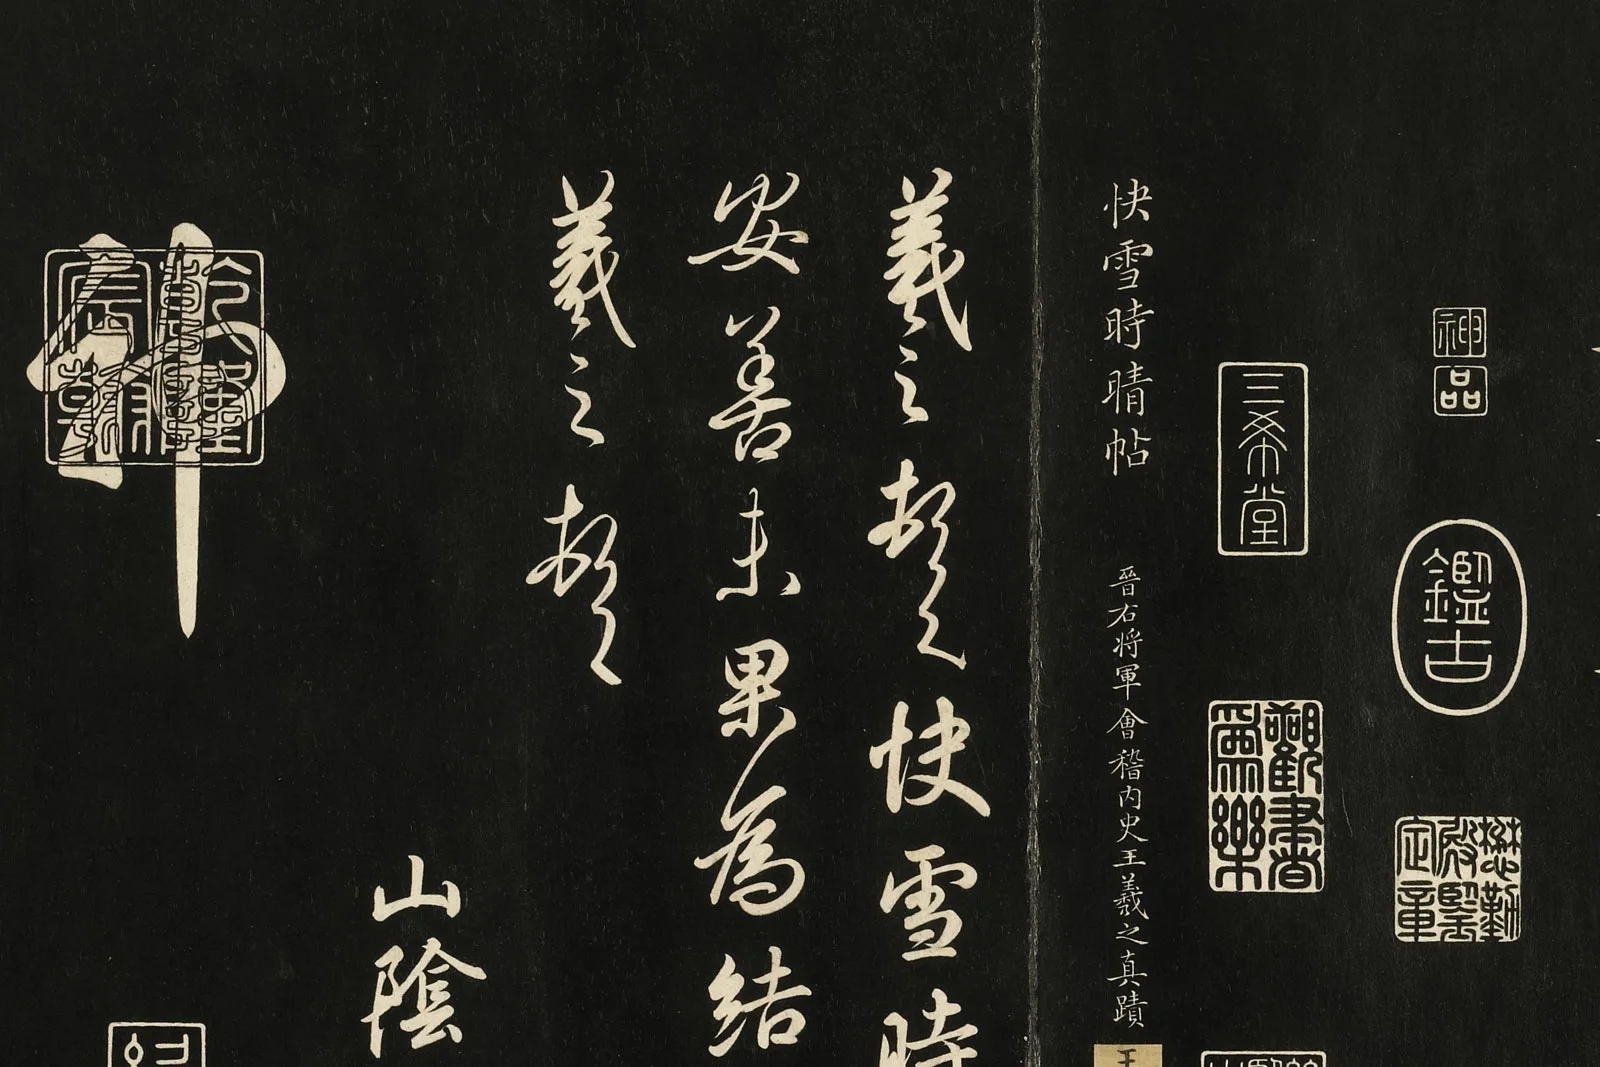 神品
鑑古
懋勤殿鑒定章
三希堂
觀書為樂
快雪時晴帖
晉右將軍會稽內史王羲之真蹟
王
羲之頓首快雪時
安善未果為結
羲之頓首
山陰
神
乾隆宸翰